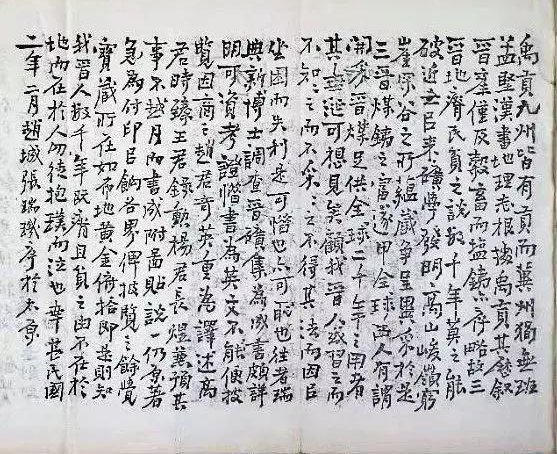 禹貢九州皆有貢而冀州獨無班
孟堅漢書地理志根據禹貢其叙
晉產僅及穀畜而塩鐵不存略故三
晉地瘠民貧之說數千年莫之能
破近世以來礦學發明高山峻嶺窮
崖深谷之所蘊藏爭呈畢采於是
三晉煤鐵之富遂甲全球西人有謂
開晉煤足供全球二千年之用者
其事誕可想見矣顧我晉人或習之而
不知知之而不采采之不得其法而因以
坐困而失利是可惜也亦可恥也往者瑞
典新博士調查晉礦集為成書頗詳
明可資考證惜書為英文不能便披
覽因商之趙君奇英重為譯述高
君時臻王君錄勳楊君長煜兼預其
事不越月而書成附圖貼說一仍原著
急為付印以餉各界俾披覽之餘覺
寶藏所在如布地黃金俯拾即是則知
我晉人數千年既瘠且貧之由不在於
地而在於人勿徒抱璞而泣也幸甚民國
二年二月趙城張瑞璣序於太原